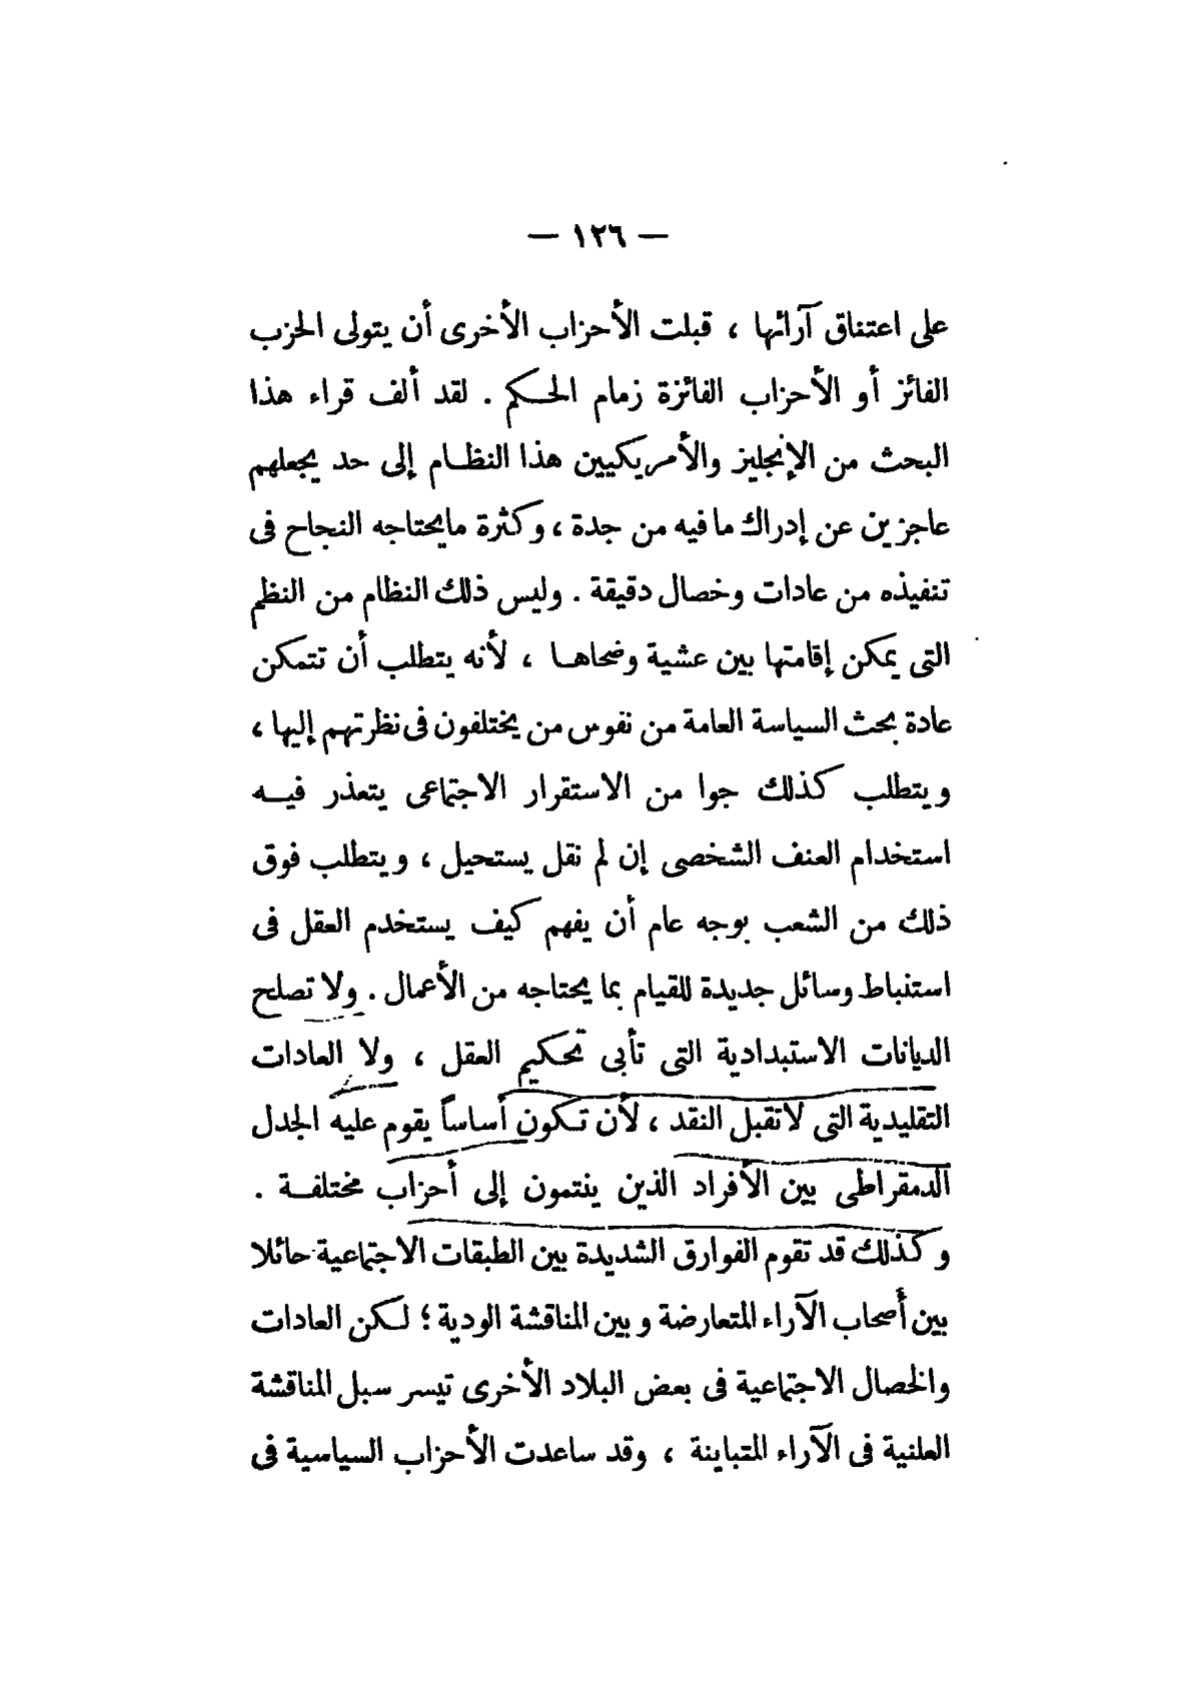 — ١٢٦ —
على اعتناق آرائها ، قبلت الأحزاب الأخرى أن يتولى الحزب
الفائز أو الأحزاب الفائزة زمام الحكم . لقد ألف قراء هذا
البحث من الإنجليز والأمريكيين هذا النظام إلى حد يجعلهم
عاجزين عن إدراك ما فيه من جدة ، وكثرة مايحتاجه النجاح فى
تنفيذه من عادات وخصال دقيقة . وليس ذلك النظام من النظم
التى يمكن إقامتها بين عشية وضحاها ، لأنه يتطلب أن تتمكن
عادة بحث السياسة العامة من نفوس من يختلفون فى نظرتهم إليها ،
ويتطلب كذلك جوا من الاستقرار الاجتماعى يتعذر فيه
استخدام العنف الشخصى إن لم نقل يستحيل ، ويتطلب فوق
ذلك من الشعب بوجه عام أن يفهم كيف يستخدم العقل فى
استنباط وسائل جديدة للقيام بما يحتاجه من الأعمال . ولا تصلح
الديانات الاستبدادية التى تأبى تحكيم العقل ، ولا العادات
التقليدية التى لاتقبل النقد ، لأن تكون أساساً يقوم عليه الجدل
الدمقراطى بين الأفراد الذين ينتمون إلى أحزاب مختلفة .
وكذلك قد تقوم الفوارق الشديدة بين الطبقات الاجتماعية حائلا
بين أصحاب الآراء المتعارضة وبين المناقشة الودية ؛ لكن العادات
والخصال الاجتماعية فى بعض البلاد الأخرى تيسر سبل المناقشة
العلنية فى الآراء المتباينة ، وقد ساعدت الأحزاب السياسية فى